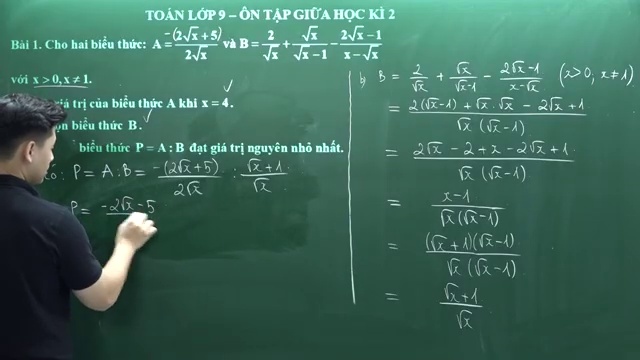 TOÁN LỚP 9 – ÔN TẬP GIỮA HỌC KÌ 2
Bài 1. Cho hai biểu thức: A = -(2√x + 5) / 2√x và B = 2/√x + √x/(√x - 1) - (2√x - 1)/(x - √x)
với x > 0, x ≠ 1.
giá trị của biểu thức A khi x = 4.
biểu thức B.
biểu thức P = A : B đạt giá trị nguyên nhỏ nhất.
P = A : B = -(2√x + 5) / 2√x : (√x + 1)/√x
P = -2√x - 5
b) B = 2/√x + √x/(√x-1) - (2√x-1)/(x-√x) (x > 0, x ≠ 1)
= (2(√x-1) + √x.√x - 2√x + 1) / √x(√x-1)
= (2√x - 2 + x - 2√x + 1) / √x(√x-1)
= (x-1) / √x(√x-1)
= (√x+1)(√x-1) / √x(√x-1)
= (√x+1) / √x